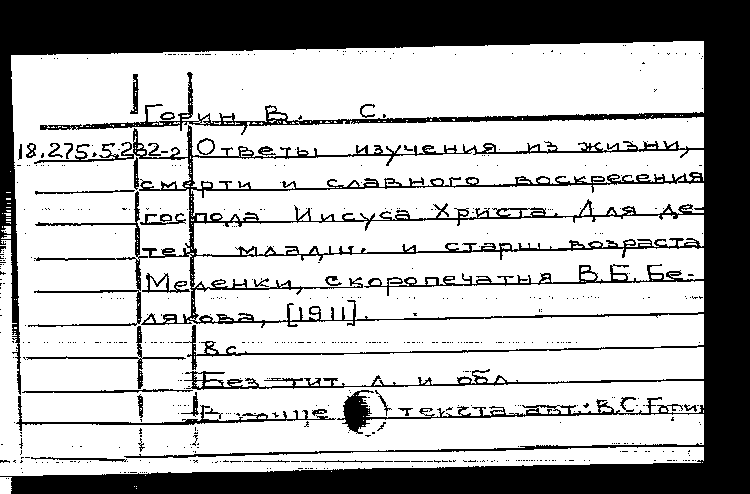 Горин, В. С.
18.275.5.232-2 Ответы изучения из жизни,
смерти и славного воскресения
господа Иисуса Христа. Для де-
тей младш. и старш. возраста
Меленки, скоропечатня В.Б. Бе-
лякова, [1911].
8 с.
Без тит. л. и обл.
В конце текста авт.: В.С. Горин